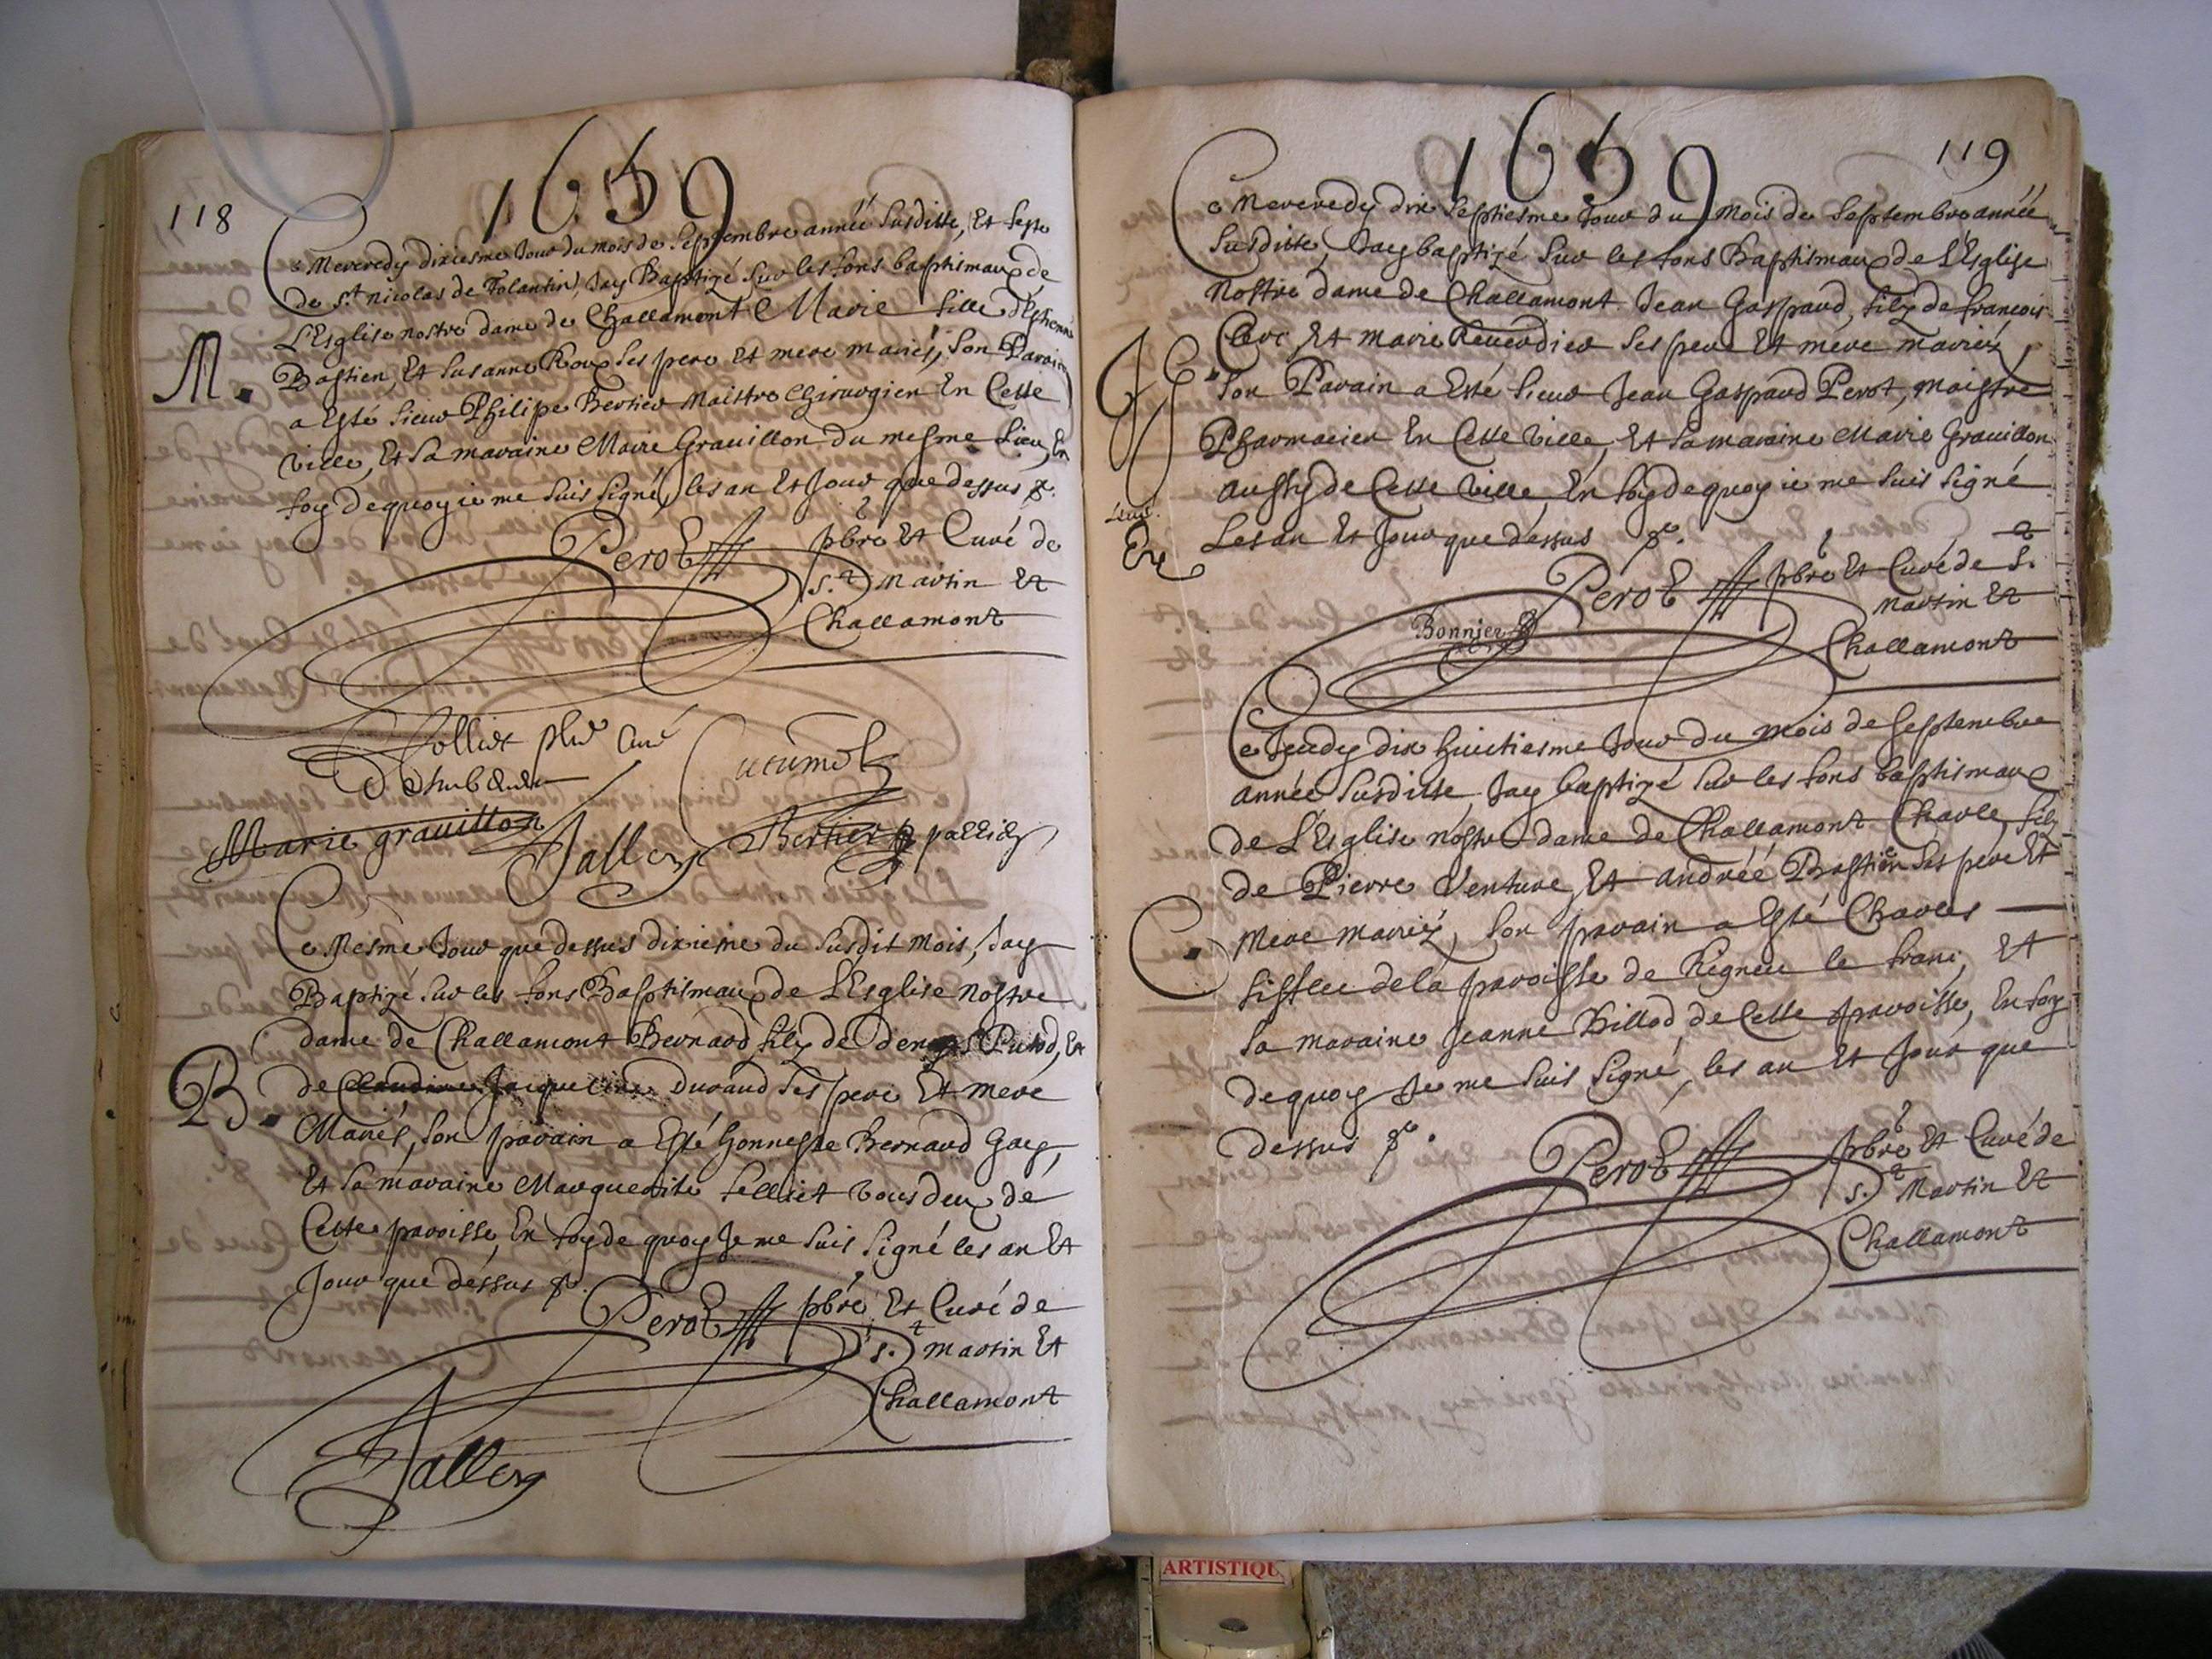 1659
118
Ce Mecredy dixiesme Jour du mois de Septembre année susditte, Et feste
de St Nicolas de Tolantin, Jay Baptizé sur les fons baptismaux de
L'Esglise nostre dame de Challamont Marie fille d'Estienne
M.
Bastien, Et Susanne Roux ses pere Et mere mariés, son Parain
a Esté sieur Philipe Bertier Maistre Chirurgien En Cette
ville, Et sa maraine Marie Grauillon du mesme Lieu, En
foy dequoy ie me suis signé, les an Et Jour que dessus
Perot pbre Et Curé de
St Martin Et
Challamont
Jollier pbre Curé
Cutumel
Marie grauillon
Jalley
Bertier
Ce Mesme Jour que dessus dixiesme du susdit mois, Jay
Baptizé sur les fons Baptismaux de L'Esglise Nostre
dame de Challamont Bernard, filz de denys Et
B.
de Jacqueline Durand ses pere Et mere
Mariés, son parain a Esté honneste Bernard Gay,
Et sa maraine Marguerite tous deux de
Cette paroisse, En foy de quoy Je me suis signé les an Et
Jour que dessus
Perot pbre Et Curé de
St Martin Et
Challamont
Jalley
1659
119
Ce Mecredy dix septiesme Jour du mois de Septembre année
susditte, Jay baptizé sur les fons Baptismaux de L'Esglise
Nostre dame de Challamont Jean Gaspard, filz de francois
Clerc Et Marie Reverdier ses pere Et mere mariéz,
JG
son Parain a Esté sieur Jean Gaspard Perot, Maistre
Pharmacien En Cette ville, Et sa maraine Marie Grauillon
aussy de Cette ville, En foy dequoy ie me suis signé
Les an Et Jour que dessus
Perot pbre Et Curé de St
Martin Et
Bonnier
Challamont
Ce Jeudy dix huictiesme Jour du mois de Septembre
année susditte, Jay baptizé sur les fons baptismaux
de L'Esglise nostre dame de Challamont Charle, filz
de Pierre Venture, Et andréé Bastien ses pere Et
C.
Mere mariéz, son parain a Esté Charles
de la paroisse de Rigneu le franc, Et
sa maraine Jeanne Billod, de Cette paroisse, En foy
dequoy Je me suis signé, les an Et Jour que
dessus
Perot pbre Et Curé de
St Martin Et
Challamont
ARTISTIQU